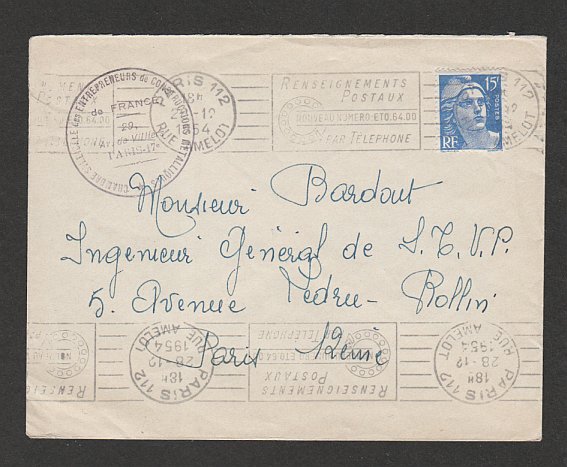 CHAMBRE SYNDICALE des ENTREPRENEURS de CONSTRUCTIONS METALLIQUES
de FRANCE
29,
Av. de Villiers
PARIS-17e
PARIS 112
18H
1954
RUE AMELOT
RENSEIGNEMENTS
POSTAUX
NOUVEAU NUMERO: ETO.64.00
PAR TELEPHONE
15F
POSTES
RF
Monsieur Bardout
Ingenieur Général de S.T.V.P.
5. Avenue Ledru-Rollin
Paris 12eme
RUE AMELOT
1954
28-12
18H
PARIS 112
TELEPHONE
POSTAUX
RENSEIGNEMENTS
RUE AMELOT
1954
28-12
18H
PARIS 112